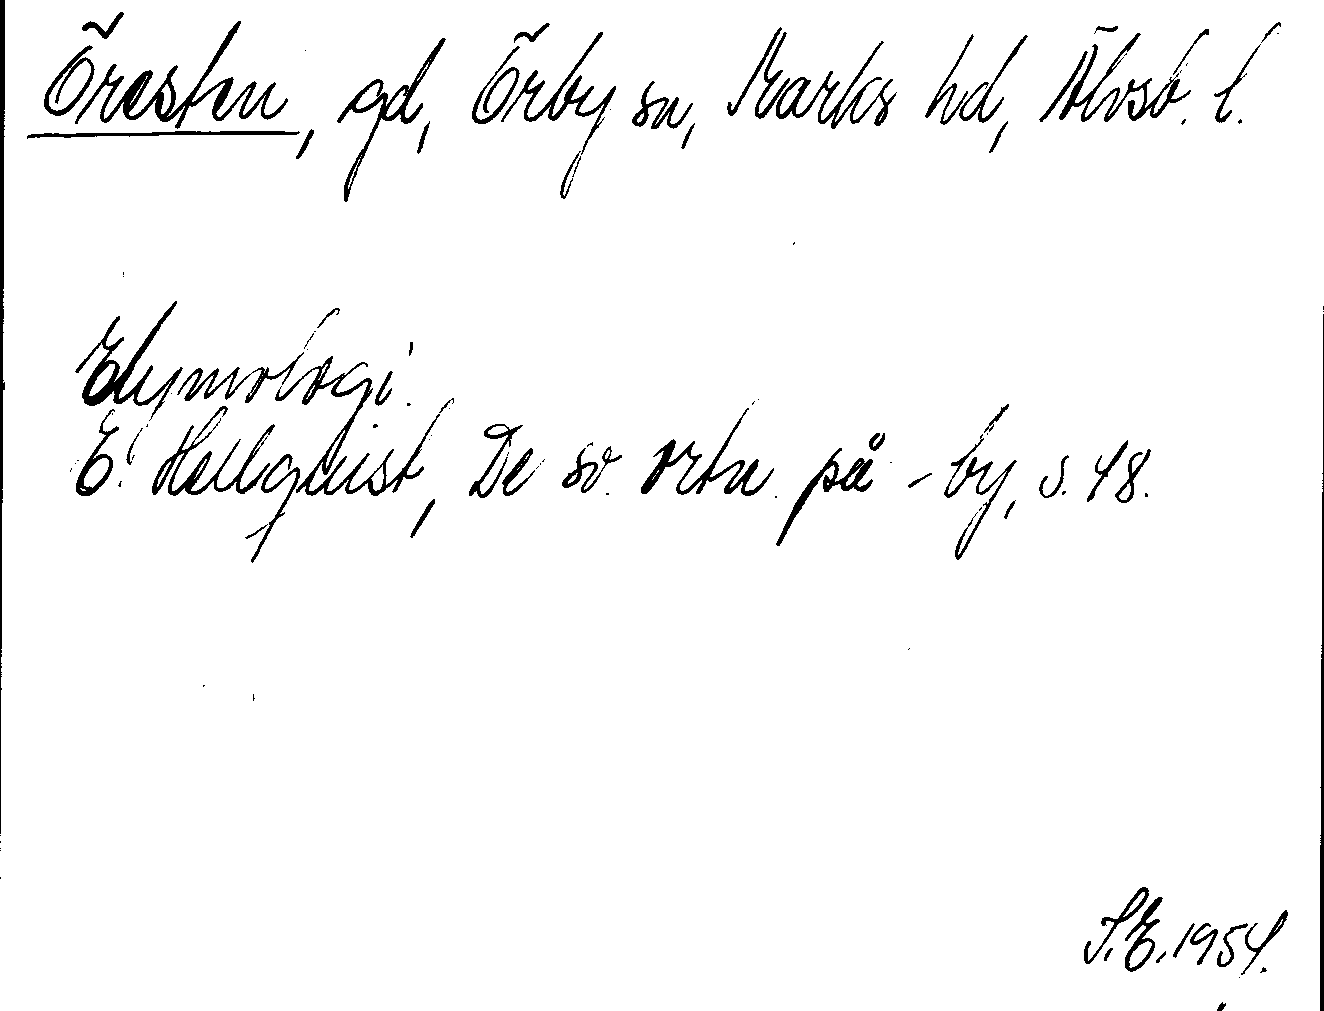 Öresten, gd, Örby sn, Marks hd, Älvsb. l.
Etymologi.
E. Hellquist, De sv. ortn. på -by, s. 48.
S.E. 1954.